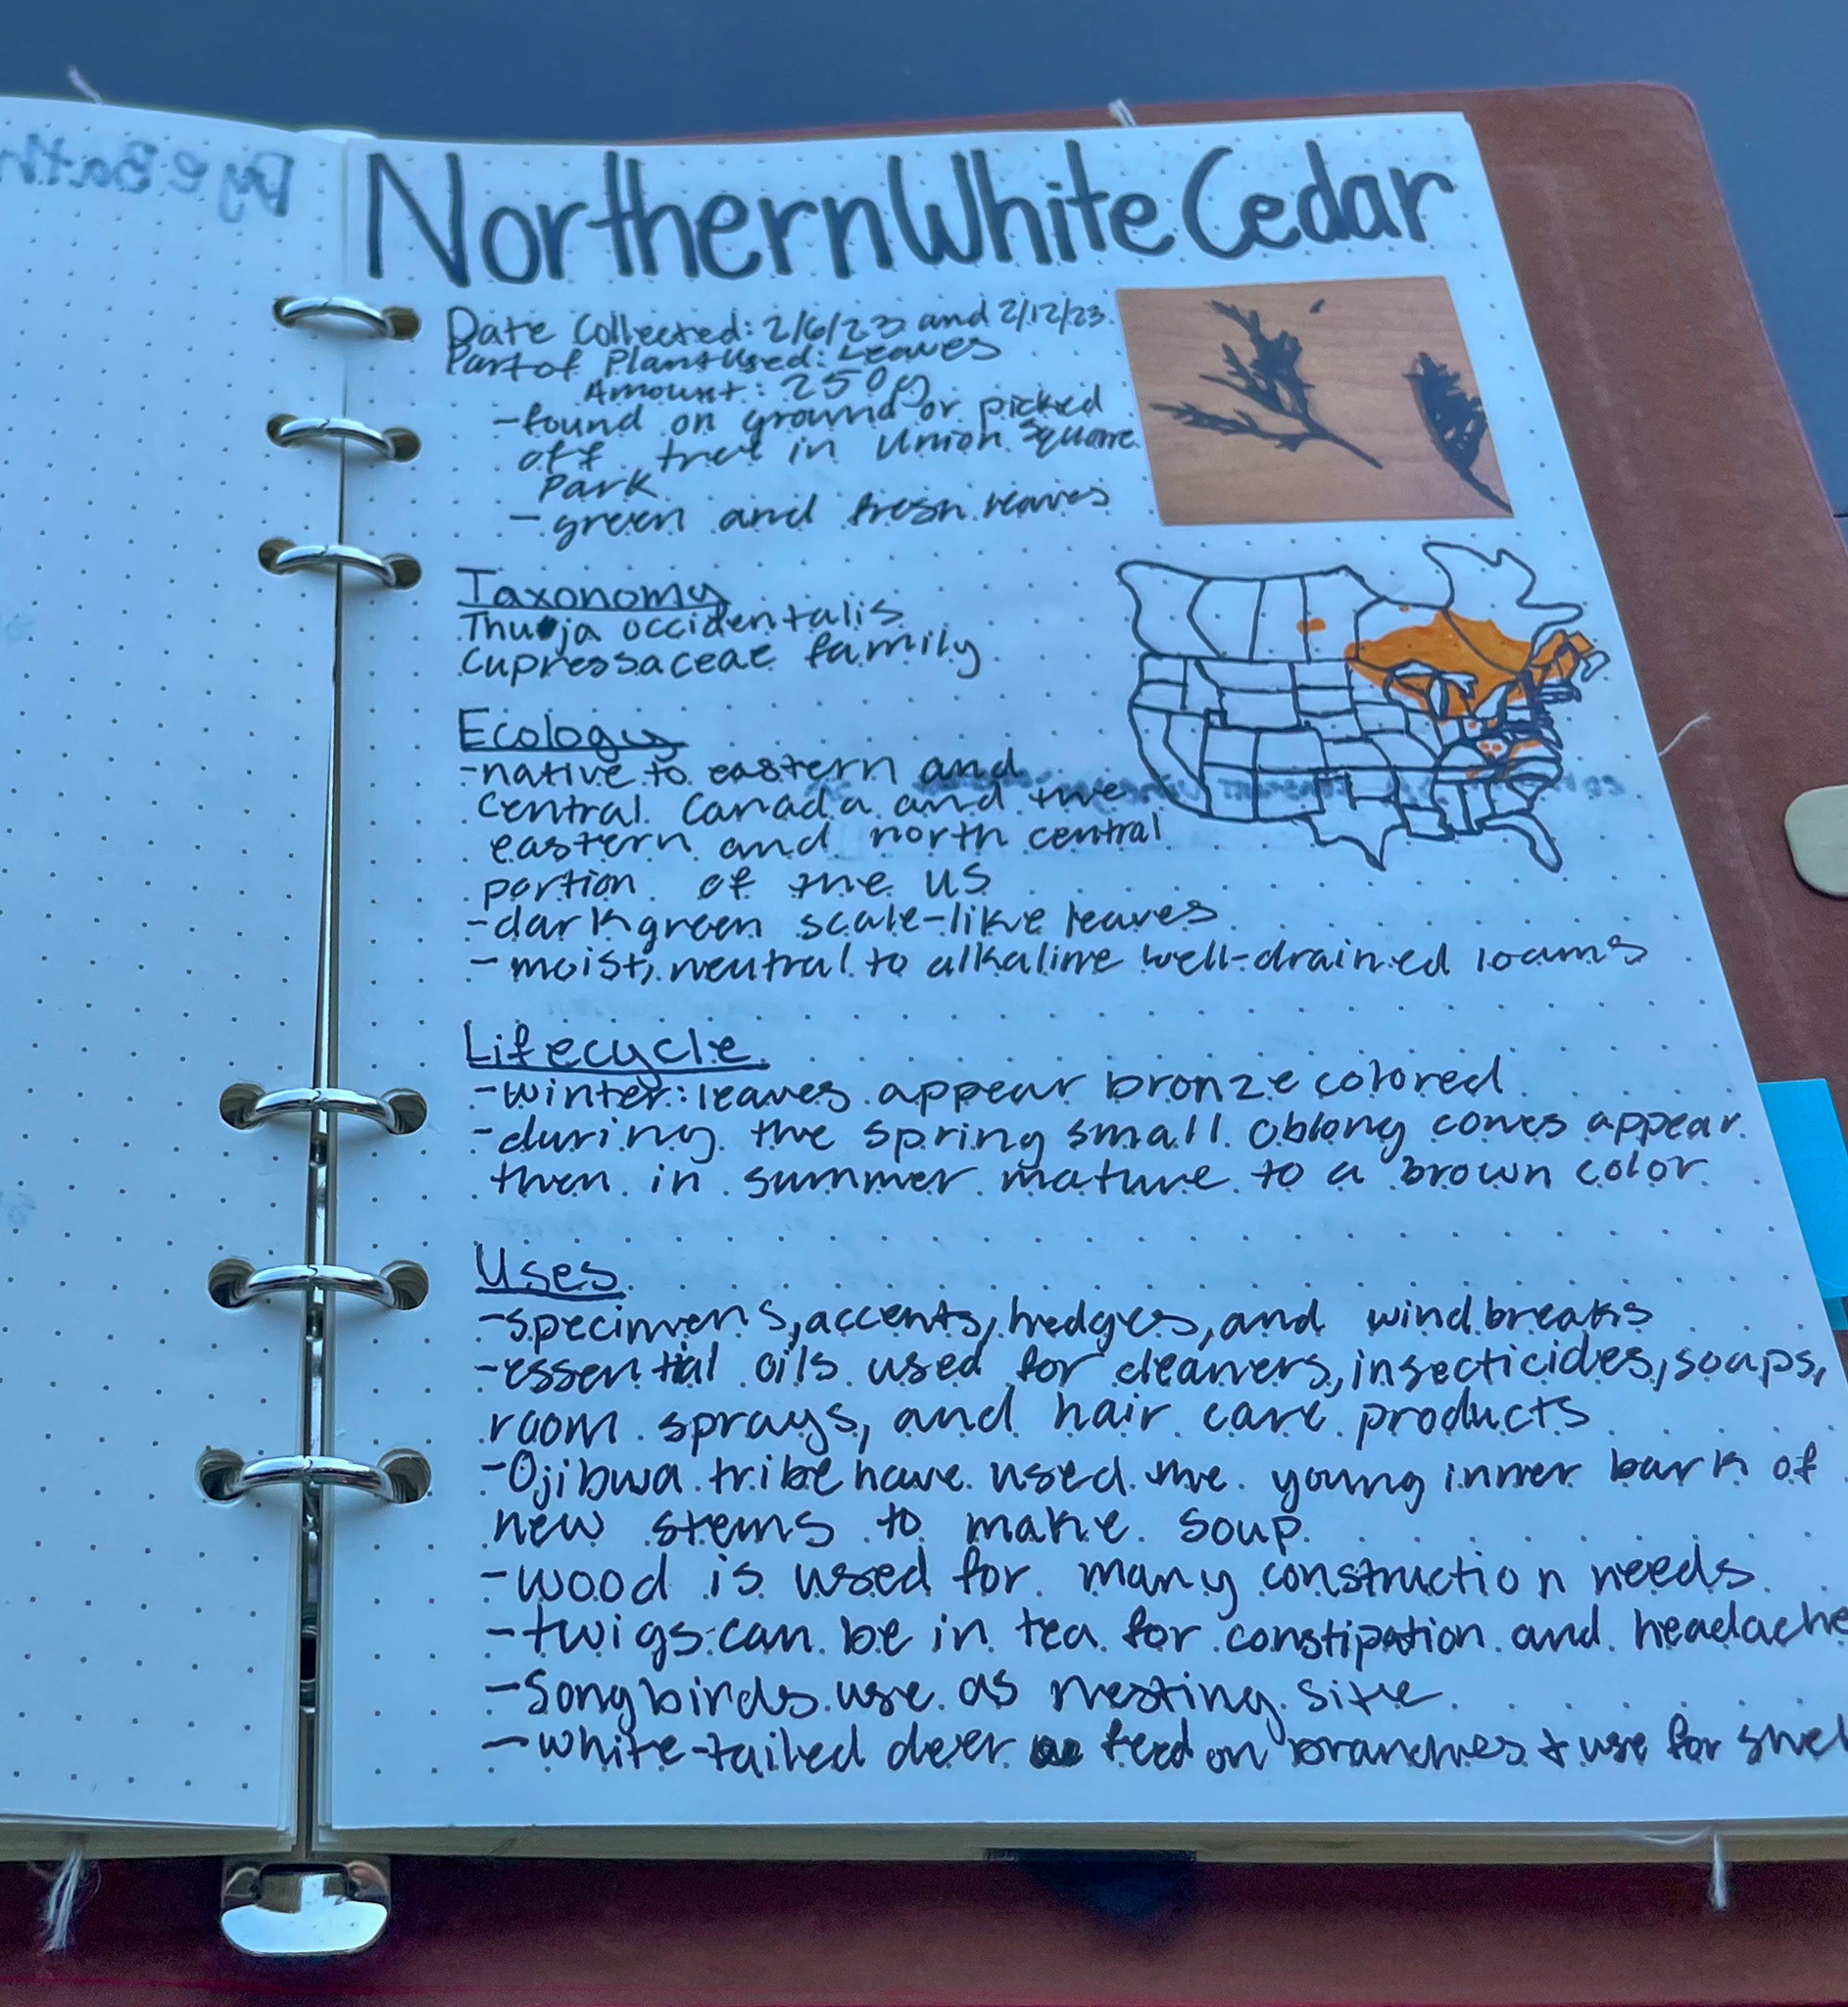 Dye Bath
Northern White Cedar
Date Collected: 2/6/23 and 2/12/23
Part of Plant Used: Leaves
Amount: 250g
-found on ground or picked
off tree in Union Square
Park
-green and fresh leaves
Taxonomy
Thuja occidentalis
Cupressaceae family
Ecology
-native to eastern and
central Canada and the
eastern and north central
portion of the US
-dark green scale-like leaves
-moist, neutral to alkaline well-drained loams
Lifecycle
-winter: leaves appear bronze colored
-during the spring small oblong cones appear
then in summer mature to a brown color
Uses
-specimens, accents, hedges, and windbreaks
-essential oils used for cleaners, insecticides, soaps,
room sprays, and hair care products
-Ojibwa tribe have used the young inner bark of
new stems to make soup
-wood is used for many construction needs
-twigs can be in tea for constipation and headache
-Songbirds use as nesting site
-white-tailed deer feed on branches + use for shel